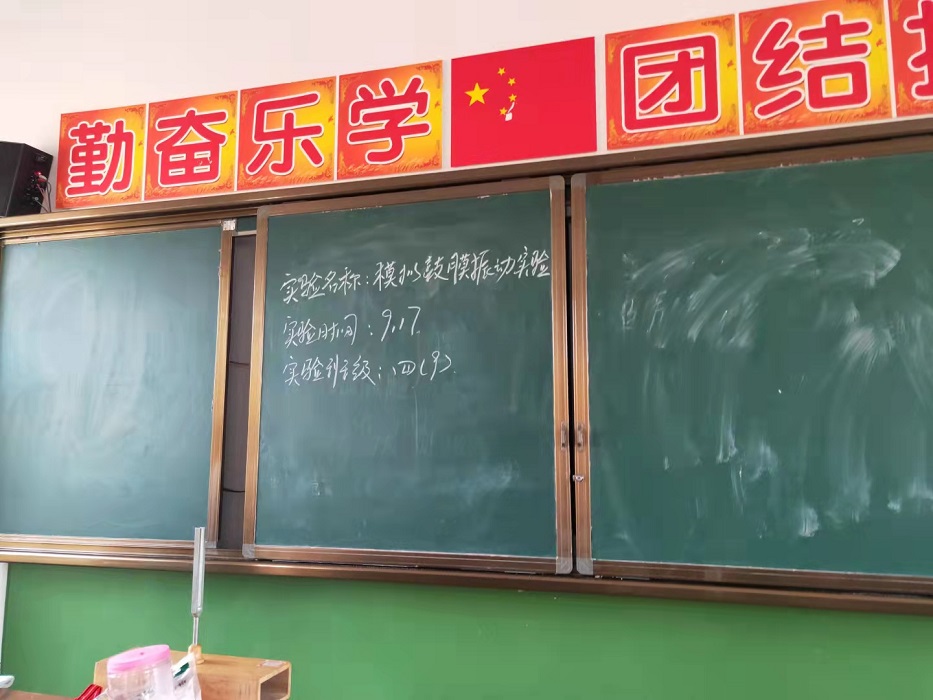 勤奋乐学 团结
实验名称:模拟鼓膜振动实验
实验时间:9.17.
实验班级:四(9).